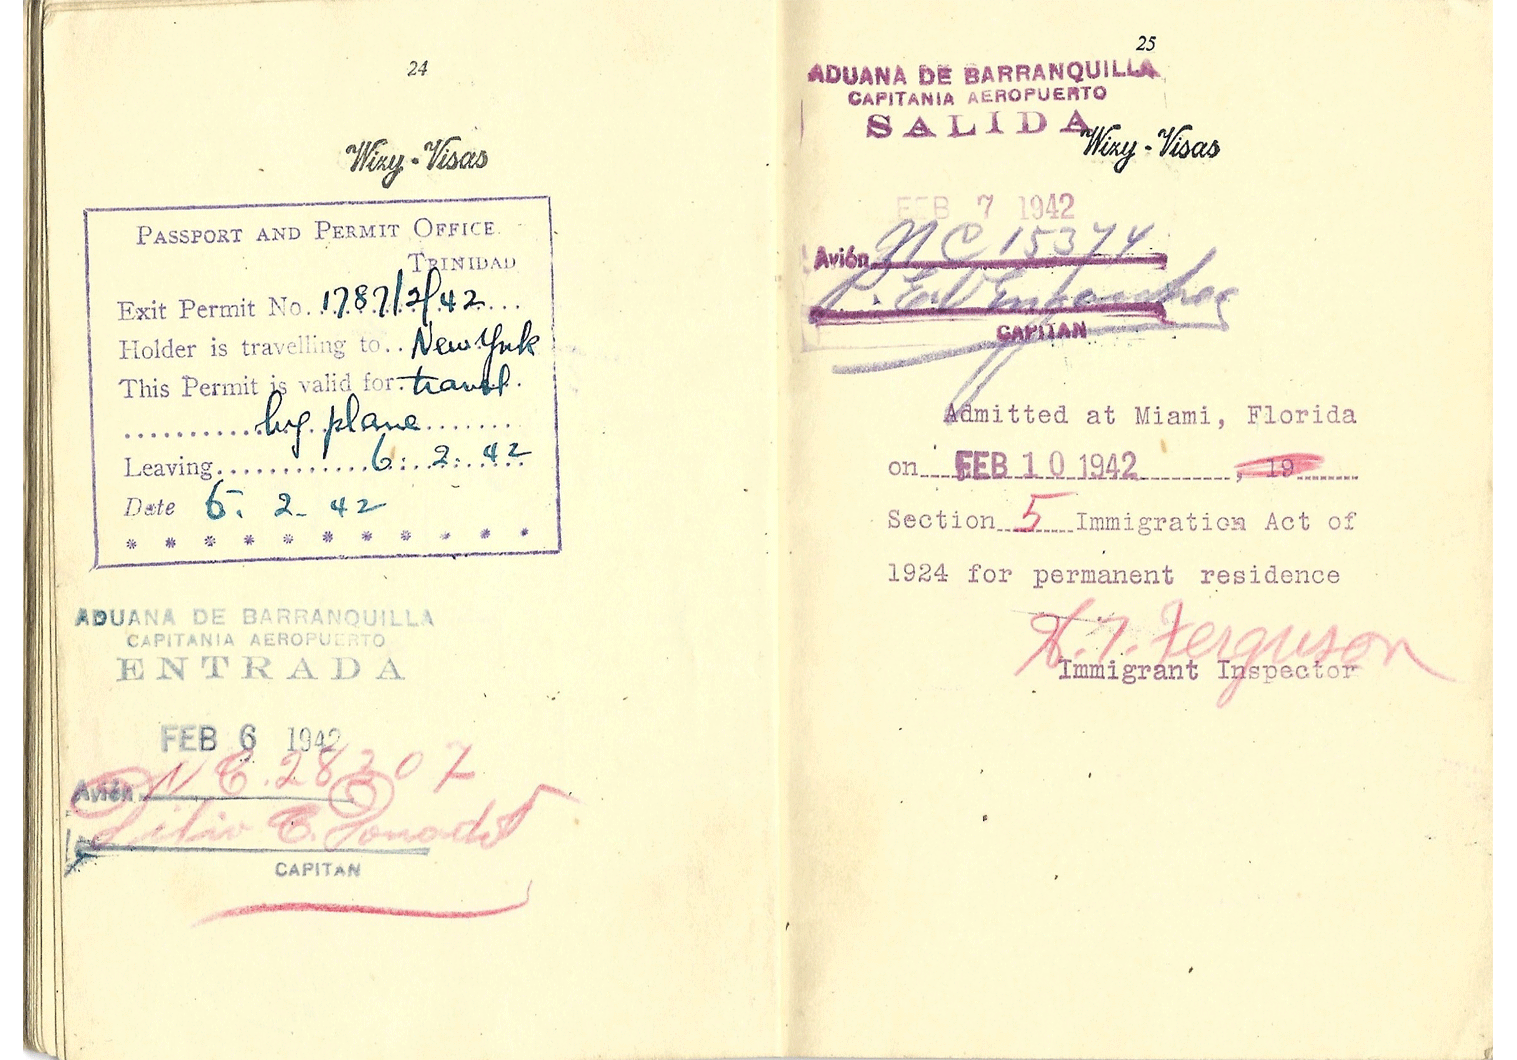 24
Wizy - Visas
PASSPORT AND PERMIT OFFICE.
TRINIDAD
Exit Permit No. 1787/2/42
Holder is travelling to.. New York
This Permit is valid for. travel
by plane
Leaving 6. 2. 42
Date 5. 2. 42
ADUANA DE BARRANQUILLA
CAPITANIA AEROPUERTO
ENTRADA
FEB 6 1942
Avión N C. 28307
CAPITAN
25
ADUANA DE BARRANQUILLA
CAPITANIA AEROPUERTO
SALIDA
Wizy - Visas
FEB 7 1942
Avión N C 15374
CAPITAN
Admitted at Miami, Florida
on FEB 10 1942, 19
Section 5 Immigration Act of
1924 for permanent residence
Ferguson
Immigrant Inspector